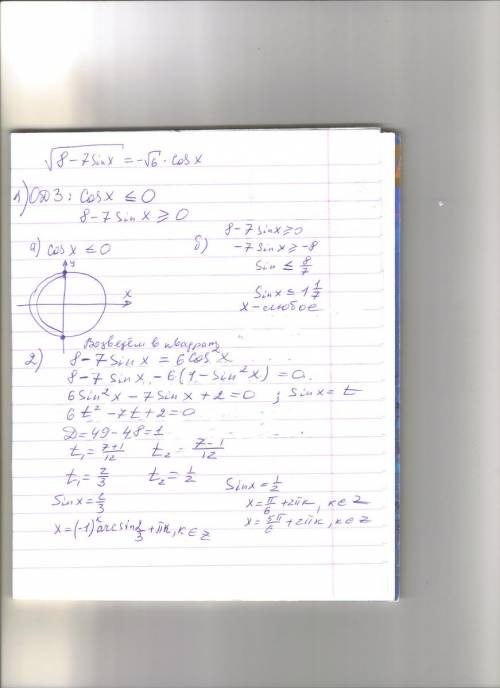 √(8-7sinx) = -√6 · cosx
1) ОДЗ: cosx ≤ 0
8-7sinx ≥ 0
а) cosx ≤ 0
y
x
б) 8-7sinx ≥ 0
-7sinx ≥ -8
sin ≤ 8/7
sinx ≤ 1 1/7
x-любое
Возведём в квадрат
2) 8-7sinx = 6cos²x
8-7sinx-6(1-sin²x) = 0
6sin²x-7sinx+2=0 ; sinx=t
6t²-7t+2=0
D=49-48=1
t₁=(7+1)/12 t₂=(7-1)/12
t₁=2/3 t₂=1/2
sinx=2/3
x=(-1)ᵏarcsin2/3+πk, k∈Z
sinx=1/2
x=π/6+2πk, k∈Z
x=5π/6+2πk, k∈Z